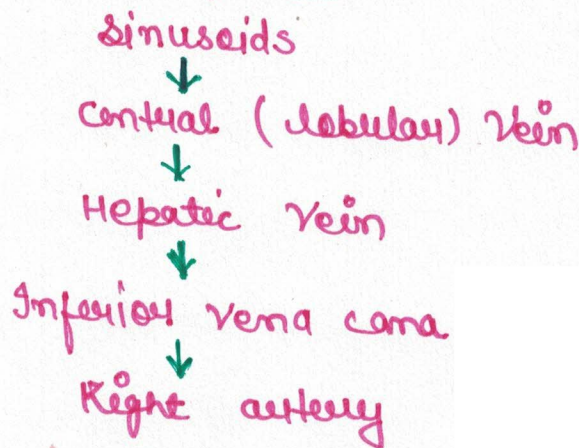 Sinusoids
Central (lobular) Vein
Hepatic Vein
Inferior vena cana
Right artery